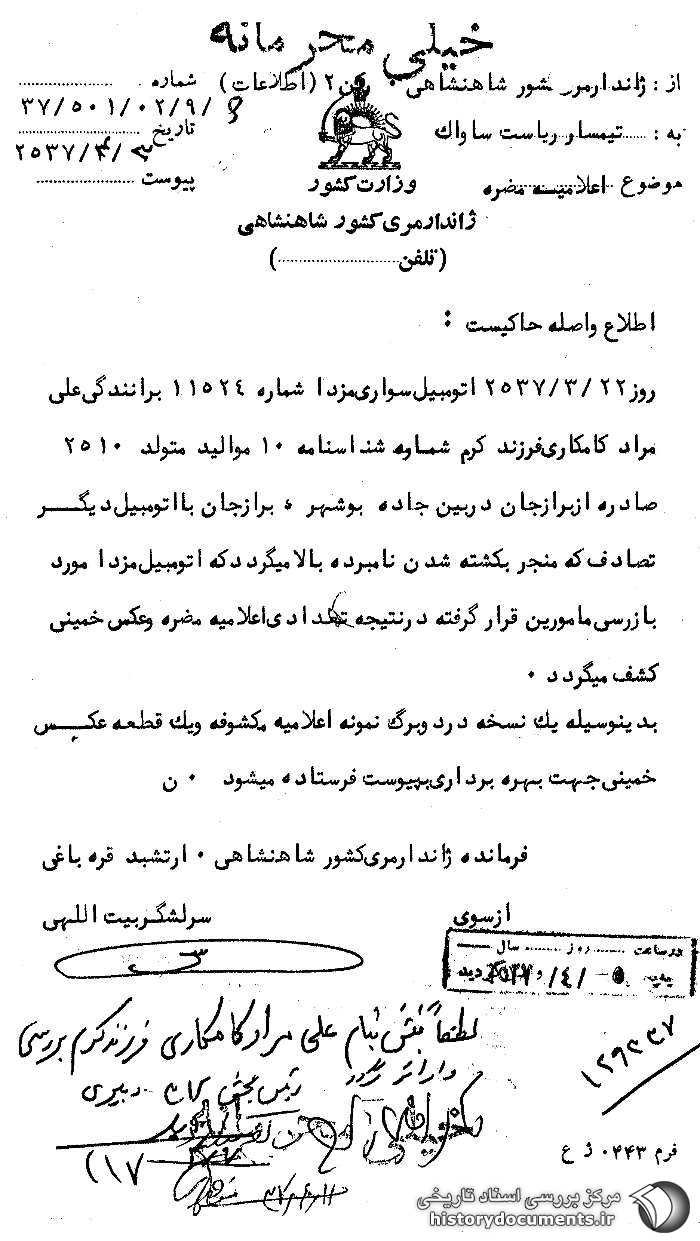 خیلی محرمانه
از : ژاندارمری کشور شاهنشاهی رکن ۲ (اطلاعات)
شماره
۳۷/۵۰۱/۰۲/۹/
به : تیمسار ریاست ساواک
تاریخ
۲۵۳۷/۴/۳
موضوع اعلامیه مضره
وزارت کشور
پیوست
ژاندارمری کشور شاهنشاهی
(تلفن)
اطلاع واصله حاکیست :
روز ۲۵۳۷/۳/۲۲ اتومبیل سواری مزدا شماره ۱۱۵۲۴ برانندگی علی
مراد کامکاری فرزند کرم شماره شناسنامه ۱۰ موالید متولد ۲۵۱۰
صادره از برازجان در بین جاده بوشهر ، برازجان با اتومبیل دیگر
تصادف که منجر بکشته شدن نامبرده بالا میگردد که اتومبیل مزدا مورد
بازرسی مامورین قرار گرفته در نتیجه تعدادی اعلامیه مضره و عکس خمینی
کشف میگردد ۰
بدینوسیله یک نسخه در دو برگ نمونه اعلامیه مکشوفه و یک قطعه عکس
خمینی جهت بهره برداری بپیوست فرستاده میشود ۰ ن
فرمانده ژاندارمری کشور شاهنشاهی ۰ ارتشبد قره باغی
از سوی سرلشگر بیت اللهی
در ساعت روز سال
لطفاً نقش بنام علی مراد کامکاری فرزند کرم بررسی
رئیس بخش ۳۱۲ دبیری
۱۲۹۳۳۷
فرم ۰۴۴۳ ژ ع
مرکز بررسی اسناد تاریخی
historydocuments.ir